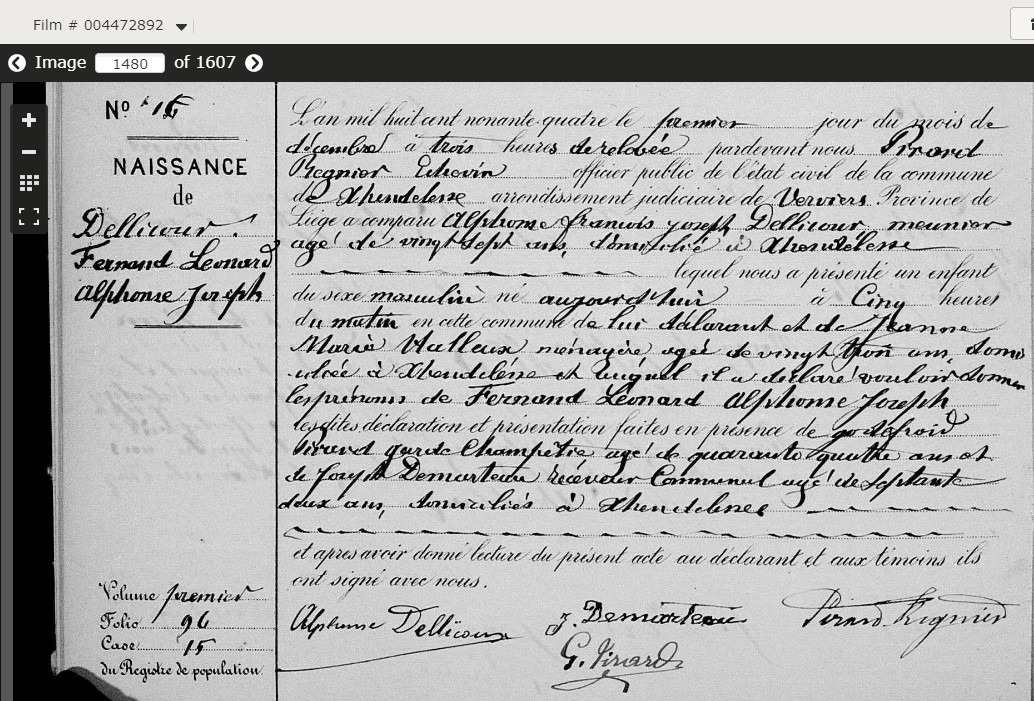 Film # 004472892
Image 1480 of 1607
Nº 15
NAISSANCE
de
Dellicour
Fernand Léonard
Alphonse Joseph
Volume premier
Folio 96
Case 15
du Registre de population.
L'an mil huit cent nonante-quatre le premier jour du mois de
décembre à trois heures de relevée pardevant nous Pirard
Regnier Echevin officier public de l'état civil de la commune
de Xhendelesse arrondissement judiciaire de Verviers Province de
Liège a comparu Alphonse François Joseph Dellicour meunier
agé de vingt sept ans, domicilié à Xhendelesse
lequel nous a présenté un enfant
du sexe masculin né aujourd'hui à Cinq heures
du matin en cette commune de lui déclarant et de Jeanne
Marie Halleux ménagère agée de vingt trois ans, domi
ciliée à Xhendelesse et auquel il a déclaré vouloir donner
les prénoms de Fernand Léonard Alphonse Joseph
les dites déclaration et présentation faites en présence de godefroid
Pirard garde Champêtre agé de quarante quatre ans et
de Joseph Demarteau receveur Communal agé de septante
deux ans, domiciliés à Xhendelesse
et après avoir donné lecture du présent acte au déclarant et aux témoins ils
ont signé avec nous.
Alphonse Dellicour J. Demarteau Pirard Regnier
G. Pirard